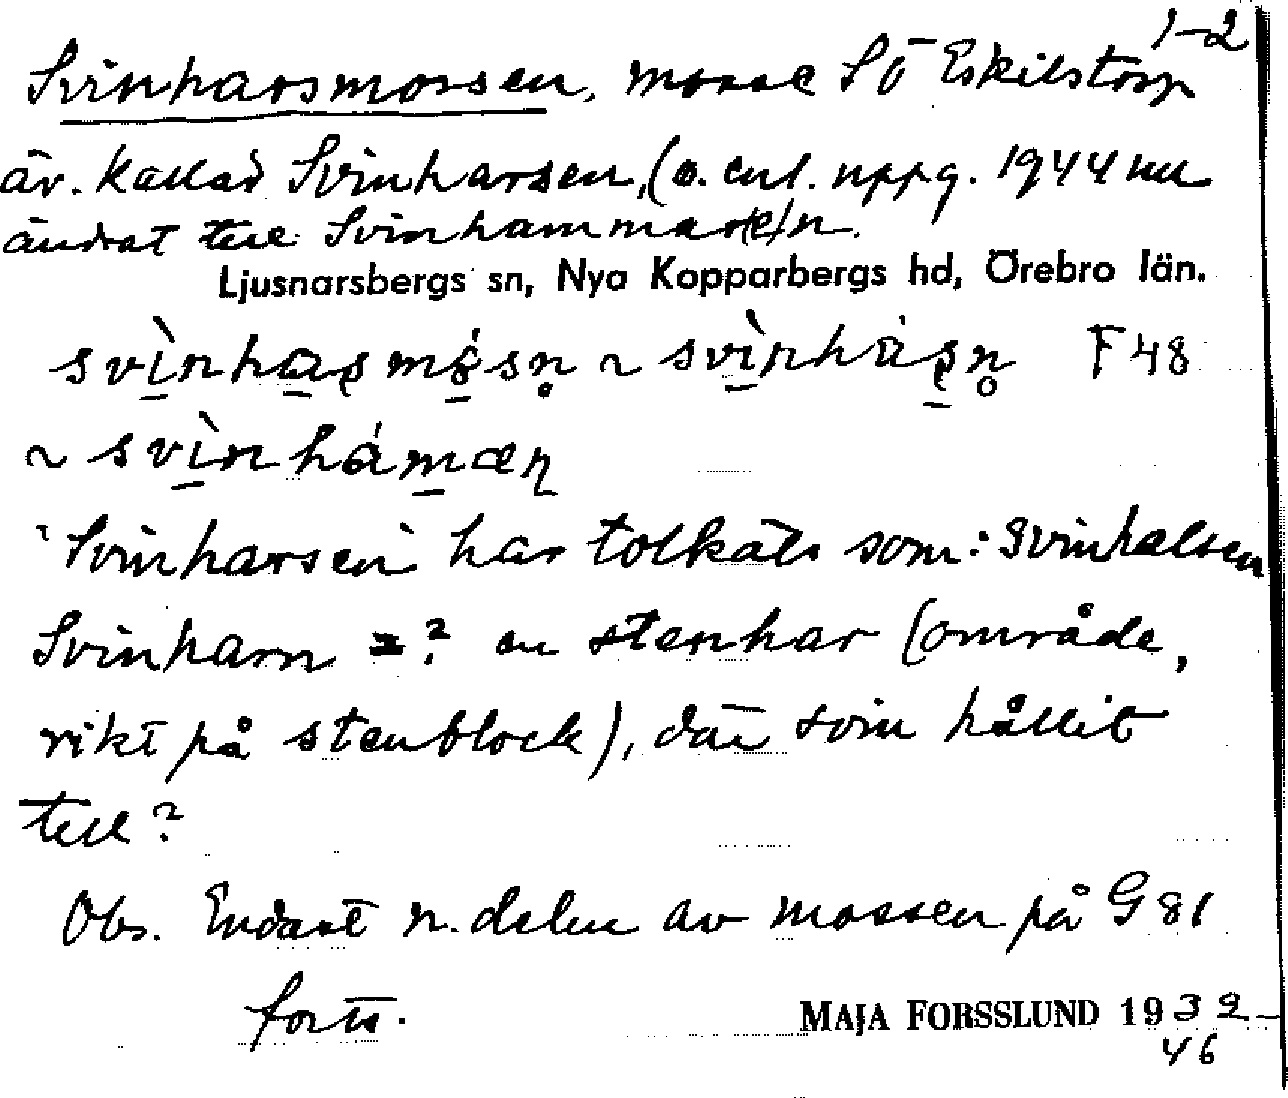 1-2
Svinharsmossen, mosse SÖ Eskilstorp
äv. kallad Svinharsen, (o. enl. uppg. 1944 nu
ändrat till Svinhammar(e)n.
Ljusnarsbergs sn, Nya Kopparbergs hd, Örebro län.
svìnhasmósn̥ ~ svìnhásn̥ F 48
~ svìnhámæn
'Svinharsen' har tolkats som: Svinhalsen
Svinharn = ? en stenhar (område,
rikt på stenblock), där svin hållit
till?
Obs. Endast n. delen av mossen på G 81
forts.
MAJA FORSSLUND 1939-
46